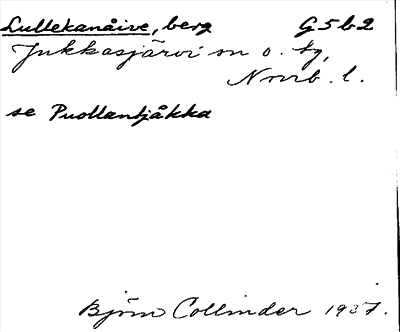 Lullekanåive, berg G5b2
Jukkasjärvi sn o. tg,
Norrb. l.
se Puollantjåkka
Björn Collinder 1937.